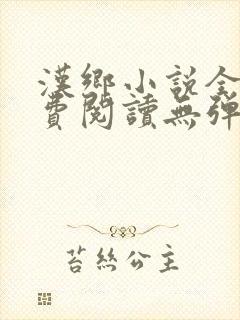 漢鄉小說全
費閱讀無彈
苔絲公主